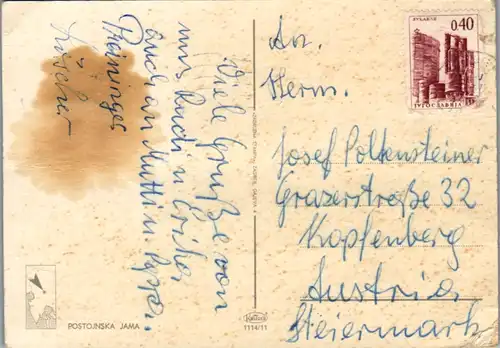 Viele Grüße von
uns Rudi u. Erika
Auch an Mutti u. Papa.
Preininger
An.
Herrn.
Josef Poltensteiner
Grazerstraße 32
Kapfenberg
Austria
Steiermark
0.40
JUGOSLAVIJA
POSTOJNSKA JAMA
1114/11